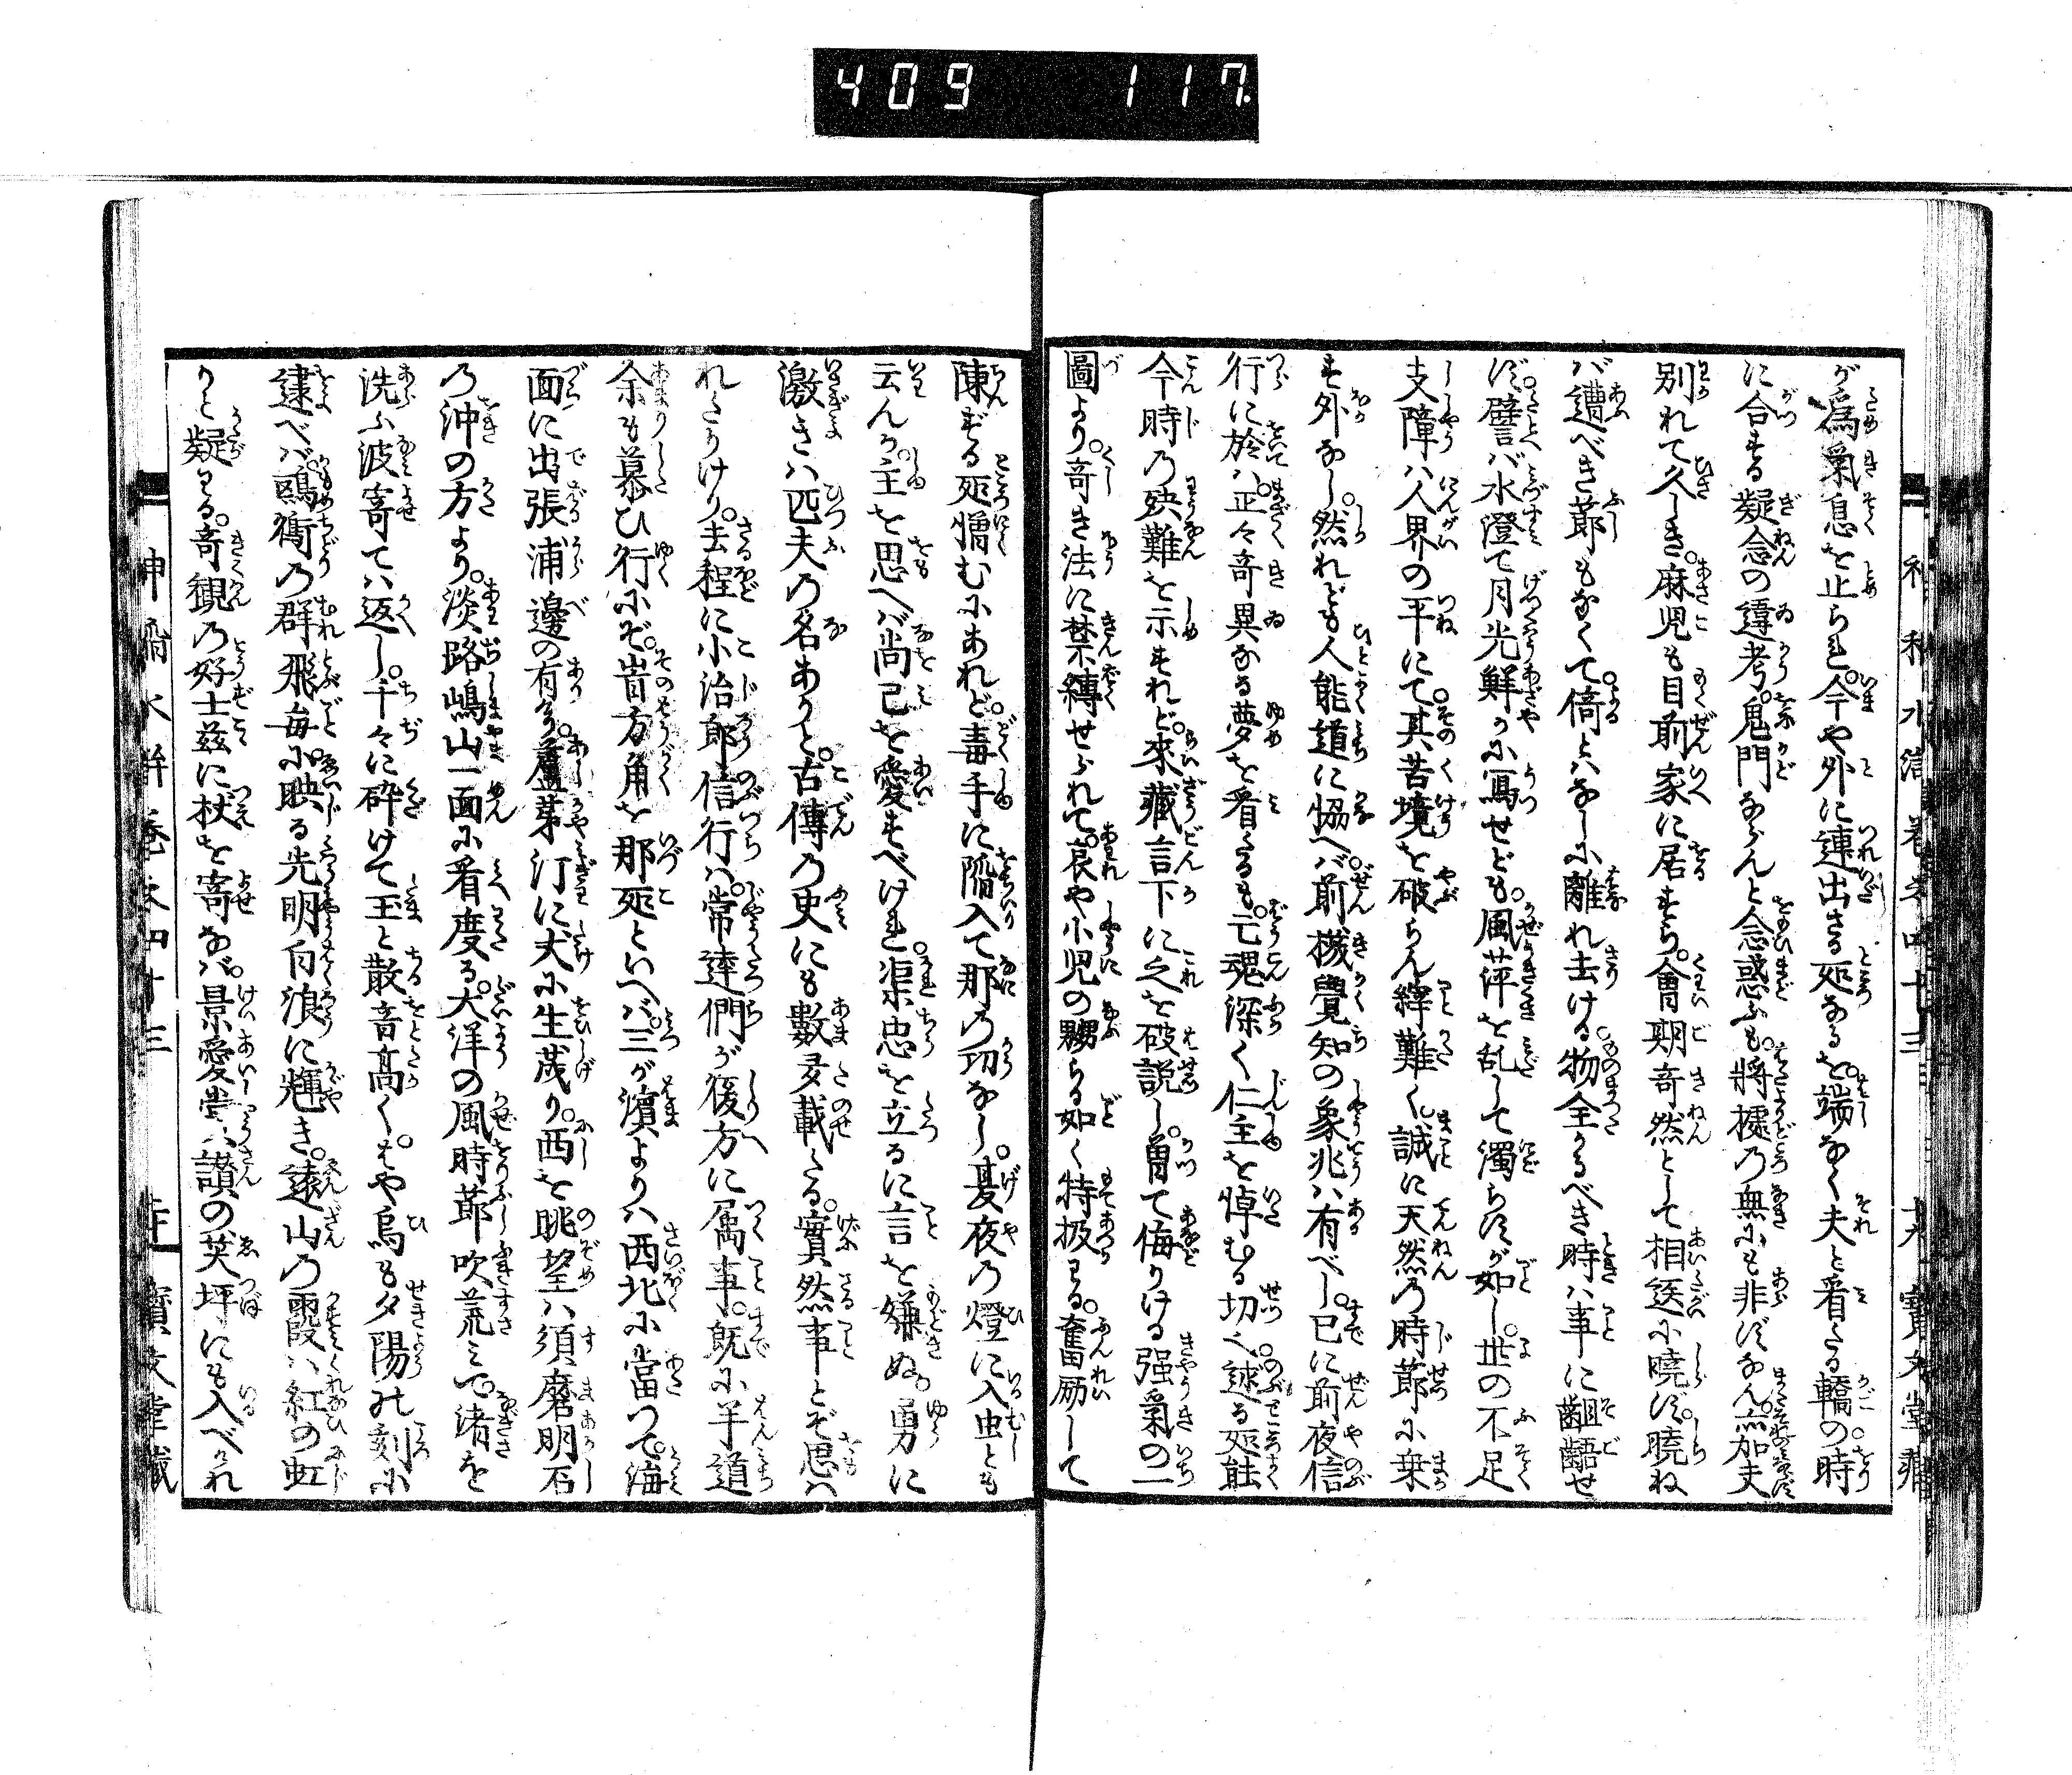 409 117
が為氣息を止られ。今や外に連出さる処なるを。端なく夫と看たる轎の時
に合する疑念の違考。鬼門ならんと念惑ふも。將據の無にも非ずなん。然加夫
別れて久しき。麻児も目前家に居すら。會期奇然として相迭に曉ず。曉ね
バ遭べき節もなくて。倚とハなしに離れ去ける。物全かるべき時ハ事に齟齬せ
ず。譬バ水澄て月光鮮かに寫せども。風萍を乱して濁らすが如し。世の不足
支障ハ人界の平にて。其苦境を破らん縡難く。誠に天然の時節に乗
す外なし。然れども人能道に恊へバ。前機覺知の象兆ハ有べし。已に前夜信
行に於ハ。正々奇異なる夢を看たるも。亡魂深く仁主を悼むる切也。逑る処能
今時の殃難を示すれど。來藏言下に之を破説し。曽て侮りける强氣の一
圖より。奇き法に禁縛せられて。哀や小児の嬲らる如く特扱はる。奮励して
陳ずる処憎むにあれど。毒手に陥入て那の功なし。夏夜の燈に入虫とも
云んか。主を思へバ尚己を愛すべけれ。渠忠を立るに言を嫌ぬ。勇に
激きハ匹夫の名ありと。古傳の史にも數多載たる。實然事とぞ思ハ
れたりけり。去程に小治郎信行ハ。常達們が後方に属事。既に半道
余も慕ひ行にぞ。旹方角を那処といへバ。三が濱よりハ西北に當つて。海
面に出張浦邊の有り。蘆茅汀に丈に生茂り。西を眺望ハ須磨明石
の沖の方より。淡路嶋山一面に看度る。大洋の風時節吹荒ミて。渚を
洗ふ波寄てハ返し。千々に砕けて玉と散音高く。はや烏も夕陽の刻に
逮べバ。鷗鵆の群飛毎に。映る光明白浪に輝き。遠山の霞ハ紅の虹
かと疑はる。奇観の好士茲に杖を寄なバ。景愛賞讃の笑坪にも入べけれ
神稻水滸傳巻之四十三 廿一 寶文堂藏